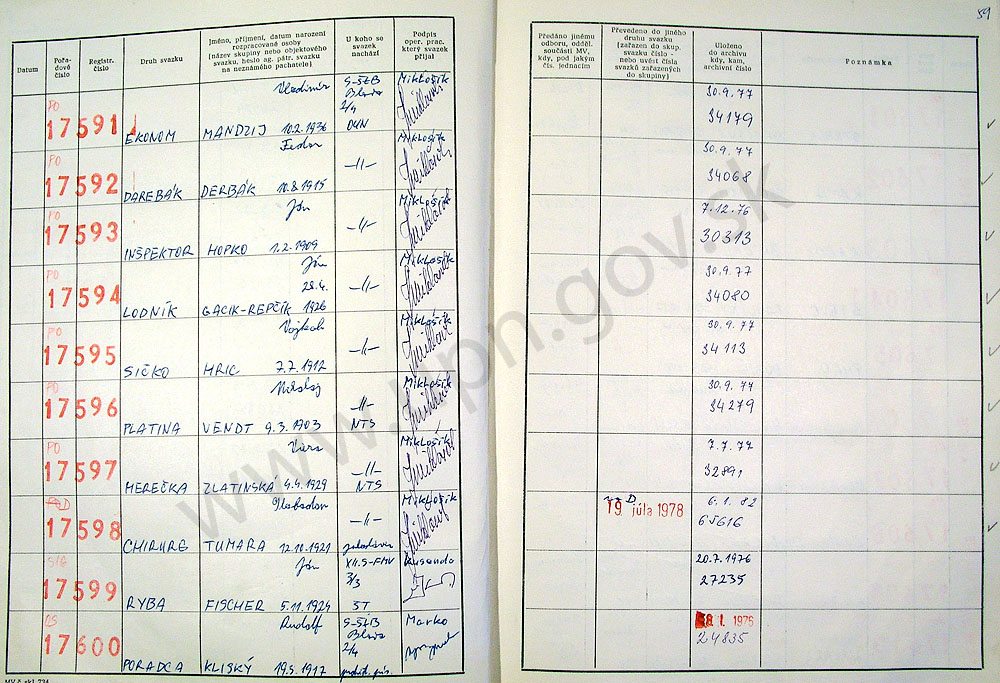 59
Datum
Pořadové číslo
Registr. číslo
Druh svazku
Jméno, příjmení, datum narození
rozpracované osoby
(název skupiny nebo objektového
svazku, heslo ag. pátr. svazku
na neznámého pachatele)
U koho se
svazek
nachází
Podpis
oper. prac.
který svazek
přijal
Předáno jinému
odboru, odděl.
součásti MV,
kdy, pod jakým
čís. jednacím
Převedeno do jiného
druhu svazku
(zařazen do skup.
svazku číslo -
nebo uvést čísla
svazků zařazených
do skupiny)
Uloženo
do archivu
kdy, kam,
archivní číslo
Poznámka
PO
17591 EKONOM MANDZIJ Vladimír 10.2.1936 S-ŠtB 2/4 Miklošík
30.9.77
34179
PO
17592 DAREBÁK DERBÁK Fedor 10.8.1915 -//- Miklošík
30.9.77
34068
PO
17593 INŠPEKTOR HOPKO Ján 1.2.1909 -//- Miklošík
7.12.76
30313
PO
17594 LODNÍK GACIK-REPČÍK Ján 28.4. 1926 -//- Miklošík
30.9.77
34080
PO
17595 SIČKO HRIC Vojtech 7.7.1912 -//- Miklošík
30.9.77
34113
PO
17596 PLATINA VENDT Nikolaj 9.3.1903 -//- NTS Miklošík
30.9.77
34279
PO
17597 HEREČKA ZLATINSKÁ Viera 4.4.1929 -//- NTS Miklošík
7.7.77
32891
17598 CHIRURG TUMARA 12.10.1921 -//- Miklošík
19. júla 1978
6.1.82
65616
17599 RYBA FISCHER Ján 5.11.1924 XII.S-FMV 3/3 ST
20.7.1976
27235
OS
17600 PORADCA KLISKÝ Rudolf 19.5.1917 S-ŠtB 2/4 Marko
1976
24835
www.upn.gov.sk